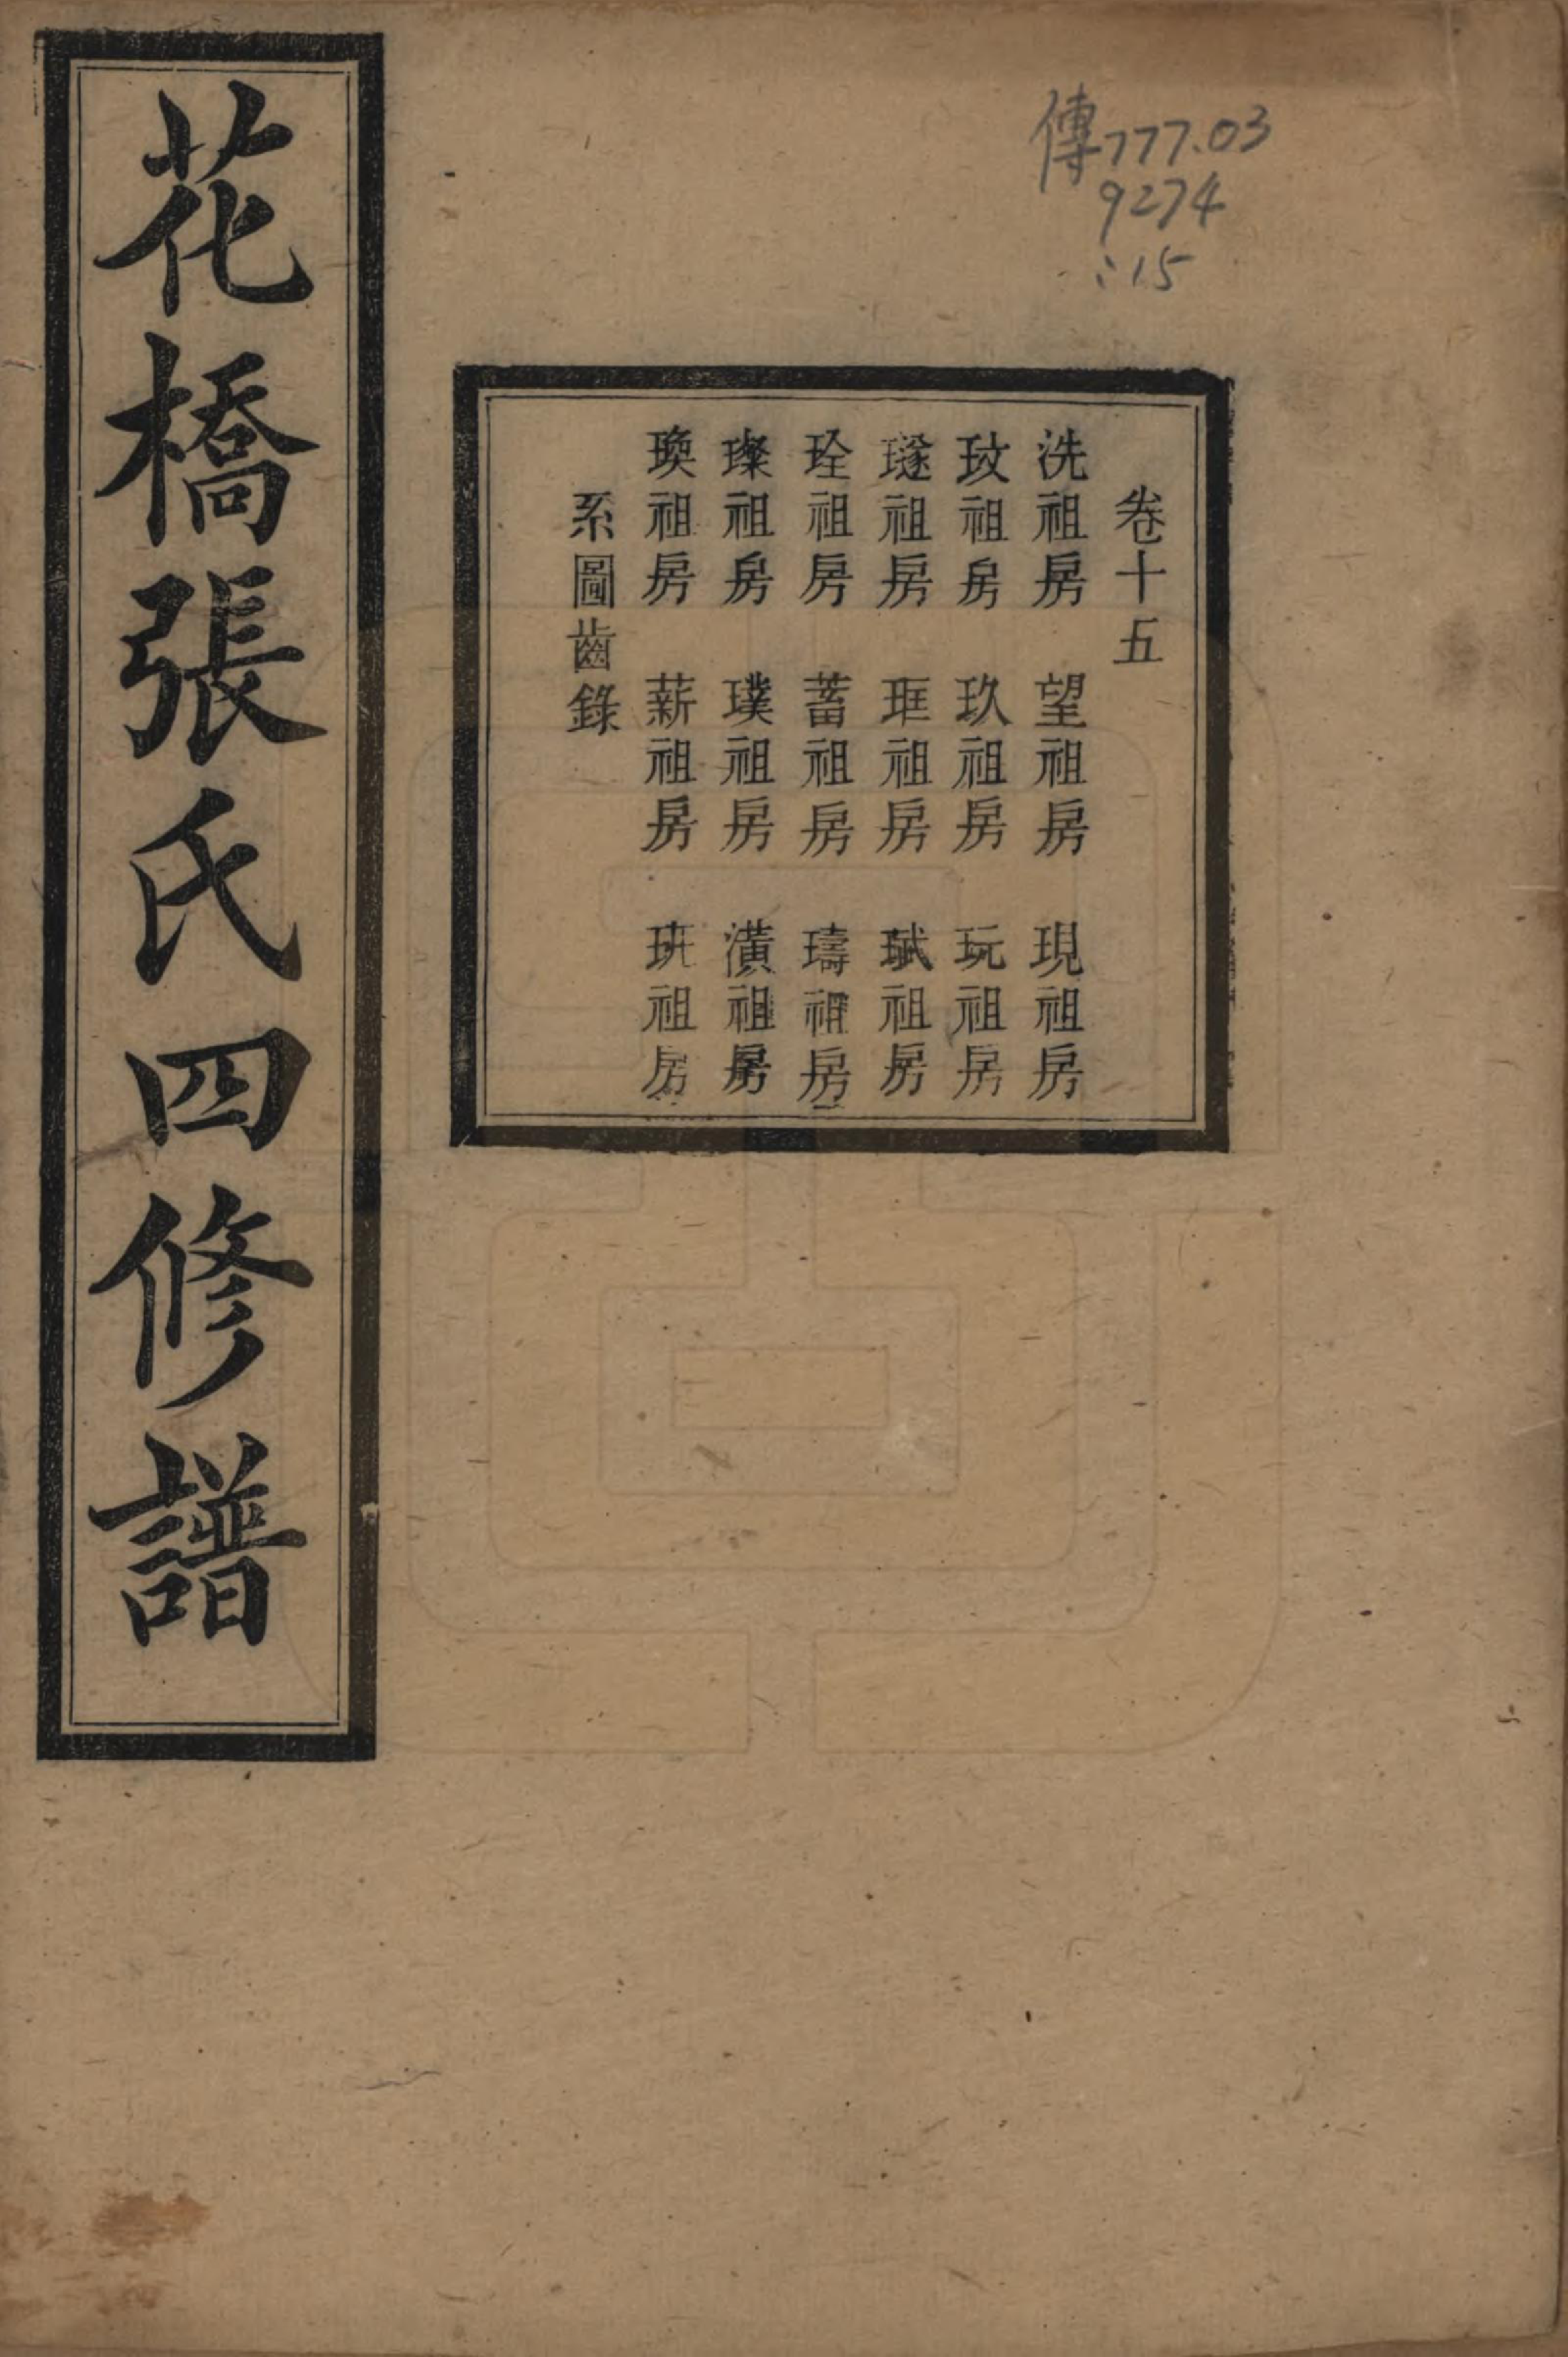 傳777.03
9274
:15
卷十五
洗祖房　望祖房　現祖房
玟祖房　玖祖房　玩祖房
璲祖房　珄祖房　珷祖房
玲祖房　蓄祖房　璹祖房
璨祖房　璞祖房　潢祖房
瑍祖房　薪祖房　玨祖房
系圖齒錄
花橋張氏四修譜